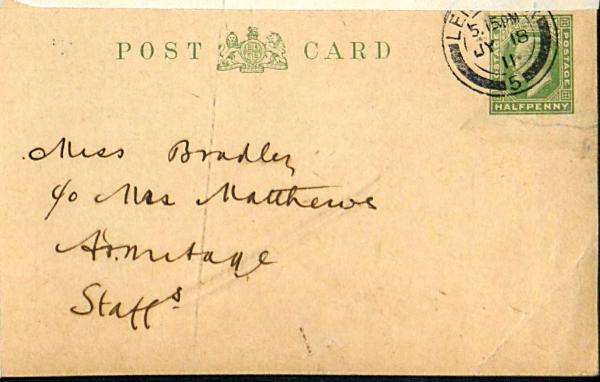 POST CARD
LEI
5.15PM
JY 18
11
5
POSTAGE
HALFPENNY
Miss Bradley
c/o Mrs Matthews
Armitage
Staffs